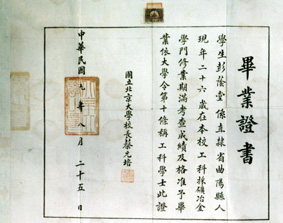 畢業證書
學生彭蔭堂係直隸省曲陽縣人
現年二十六歲在本校工科採礦冶金
學門修業期滿考查成績及格准予畢
業依大學令第十條稱工科學士此證
國立北京大學校長蔡元培
中華民國九年八月二十五日